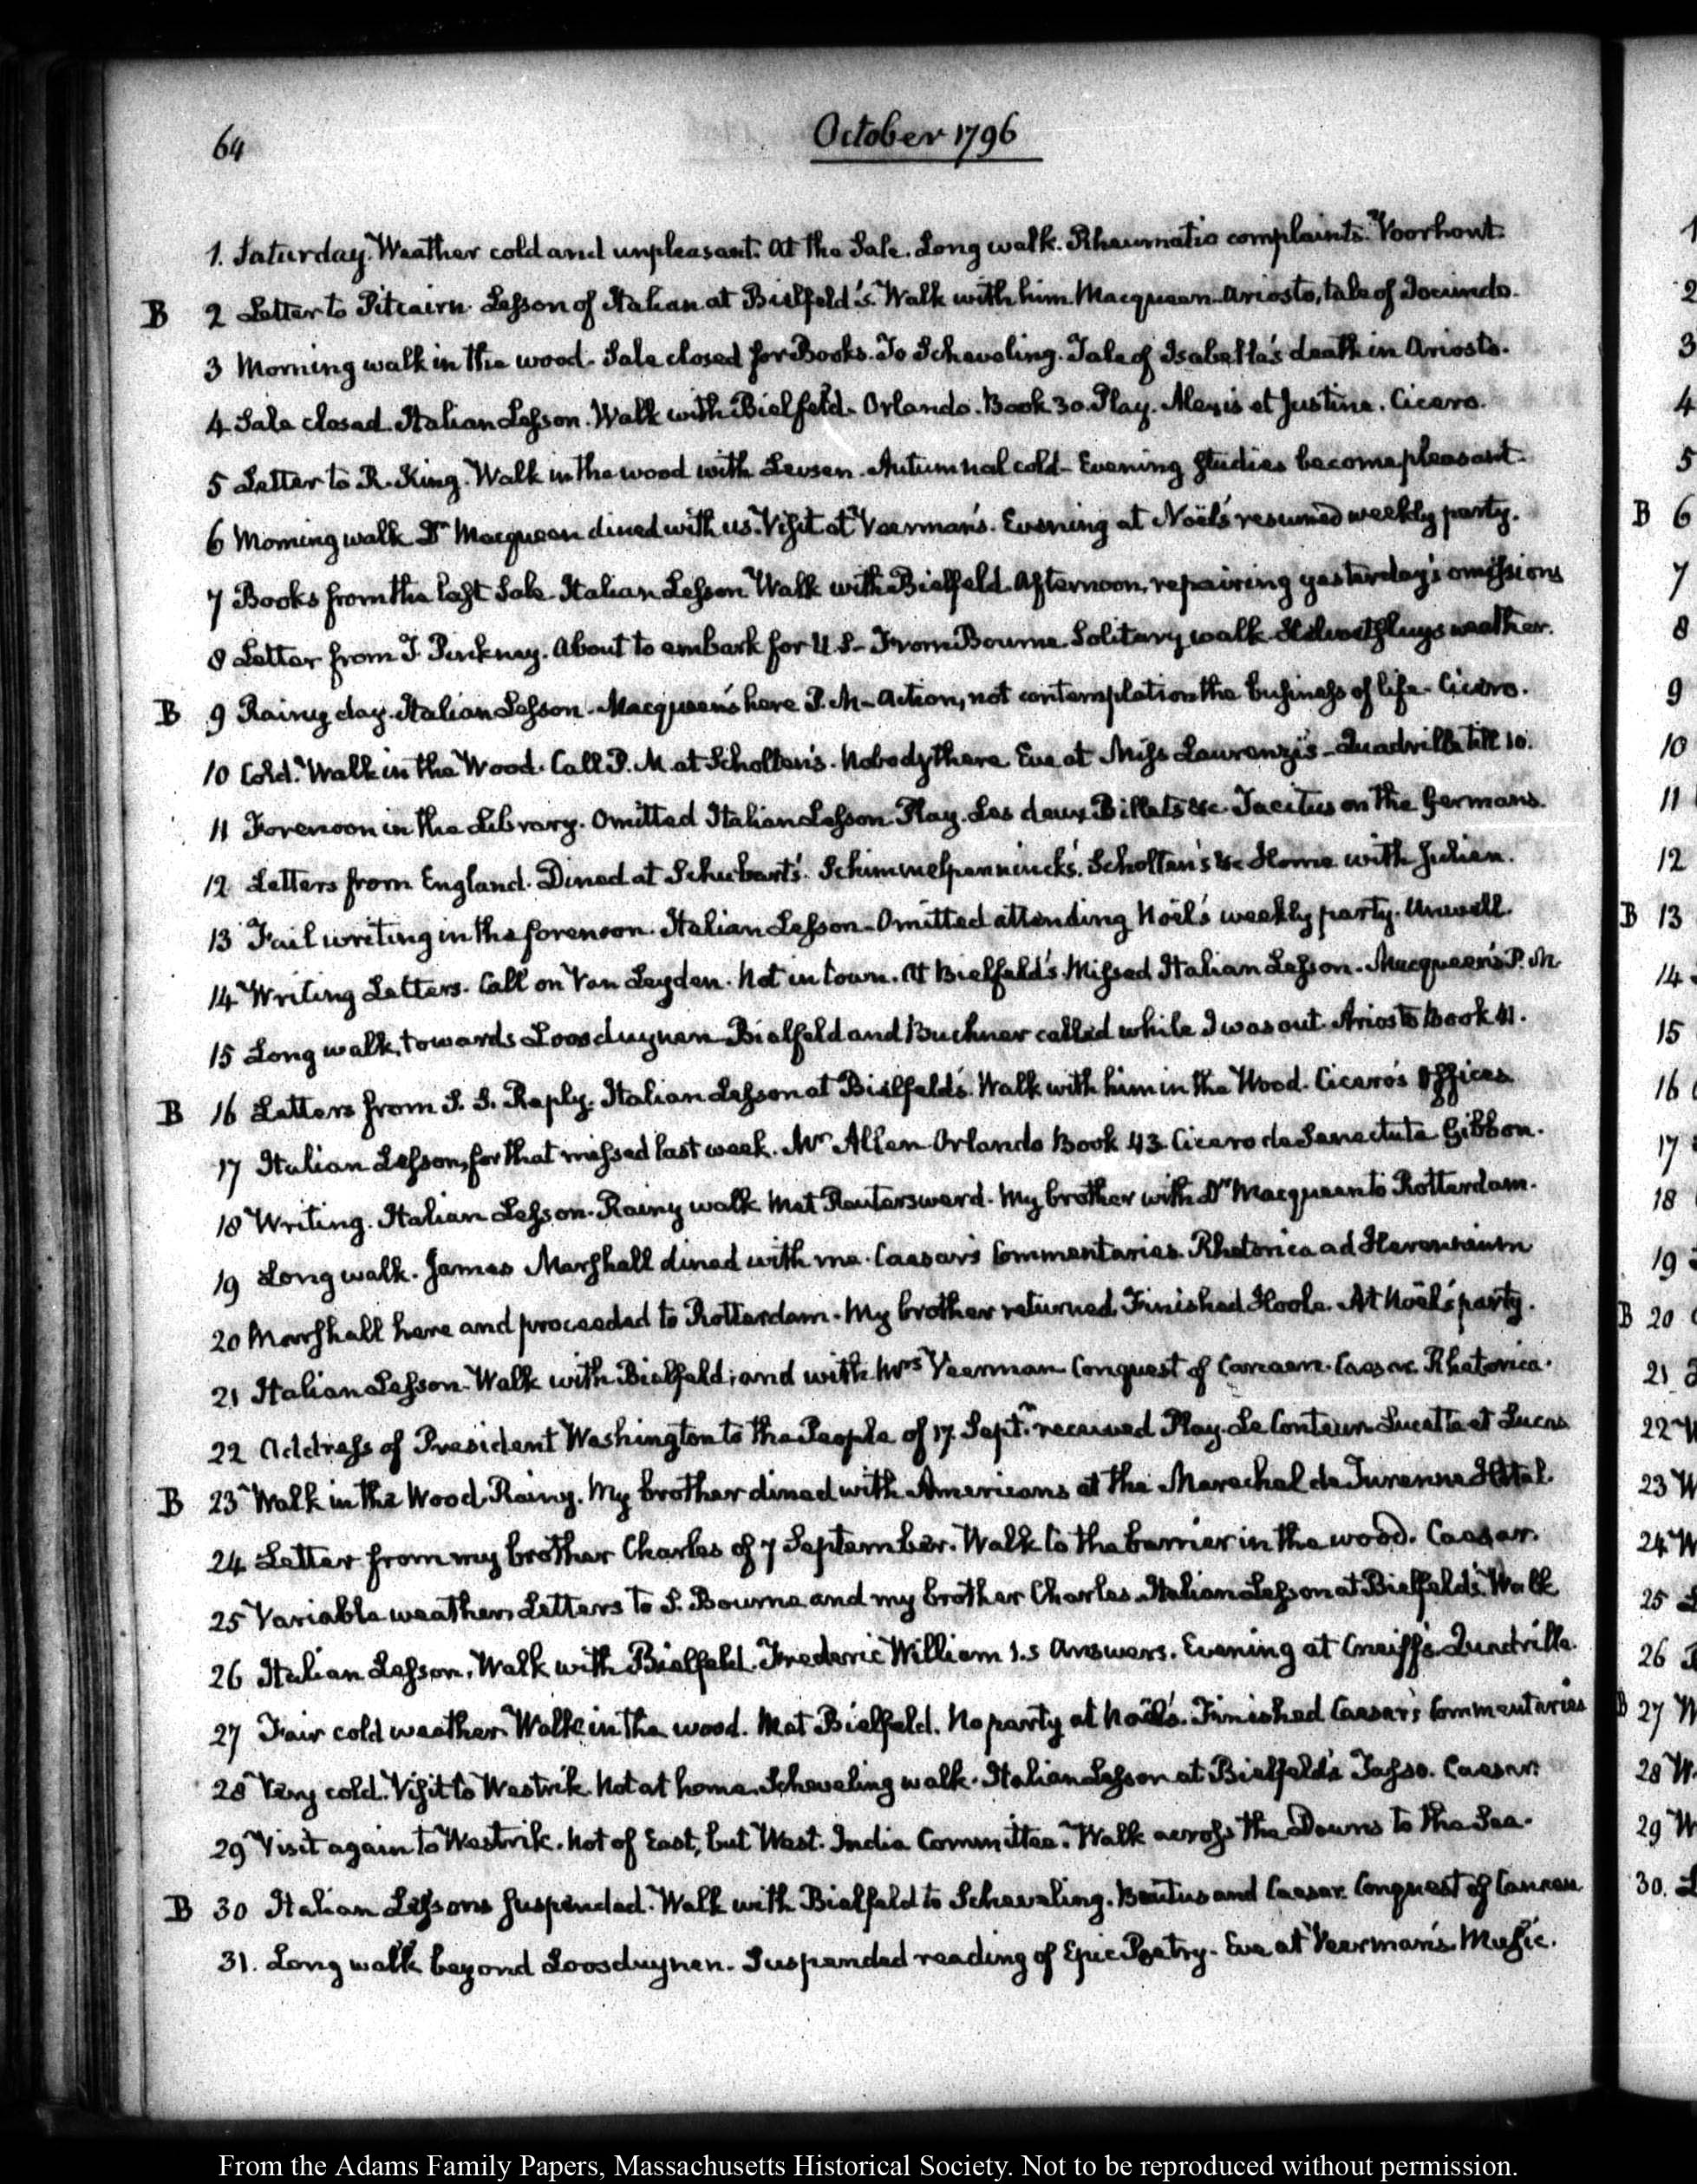 64
October 1796
1. Saturday. Weather cold and unpleasant. At the Sale. Long walk. Rheumatic complaints. Voorhout.
B 2 Letter to Pitcairn. Lesson of Italian at Bielfeld's. Walk with him. Macqueen. Ariosto, tale of Jocundo.
3 Morning walk in the wood. Sale closed for Books. To Scheveling. Tale of Isabella's death in Ariosto.
4 Sale closed. Italian Lesson. Walk with Bielfeld. Orlando. Book 30. Play. Alexis et Justine. Cicero.
5 Letter to R. King. Walk in the wood with Levsen. Autumnal cold. Evening studies become pleasant.
6 Morning walk. Dr Macqueen dined with us. Visit at Veerman's. Evening at Noël's resumed weekly party.
7 Books from the last Sale. Italian Lesson. Walk with Bielfeld. Afternoon, repairing yesterday's omissions
8 Letter from T. Pinkney. About to embark for U.S. From Bourne. Solitary walk. weather.
B 9 Rainy day. Italian Lesson. Macqueen's here P.M. Action, not contemplation the business of life. Cicero.
10 Cold. Walk in the Wood. Call P.M. at Scholten's. Nobody there. Eve at Miss Laurenzy's. Quadrille till 10.
11 Forenoon in the Library. Omitted Italian Lesson. Play. Les deux Billets &c. Tacitus on the Germans.
12 Letters from England. Dined at Schubart's. Schimmelpennincks'. Scholten's &c. Home with Julien.
13 Fail writing in the forenoon. Italian Lesson. Omitted attending Noël's weekly party. Unwell.
14 Writing Letters. Call on Van Leyden. Not in town. At Bielfeld's. Missed Italian Lesson. Macqueen's P.M.
15 Long walk, towards Loosduynen. Bielfeld and Buchner called while I was out. Ariosto Book 41.
B 16 Letters from S. S. Reply. Italian Lesson at Bielfeld's. Walk with him in the Wood. Cicero's Offices.
17 Italian Lesson, for that missed last week. Mr Allen. Orlando Book 43. Cicero de Senectute. Gibbon.
18 Writing. Italian Lesson. Rainy walk. Met Reutersward. My brother with Dr Macqueen to Rotterdam.
19 Long walk. James Marshall dined with me. Caesar's Commentaries. Rhetorica ad Herennium
20 Marshall here and proceeded to Rotterdam. My brother returned. Finished Hoole. At Noël's party.
21 Italian Lesson. Walk with Bielfeld; and with Mrs Veerman. Conquest of Canaan. Caesar. Rhetorica.
22 Address of President Washington to the People of 17. Septr. received. Play. Le Conteur. Lucette et Lucas
B 23 Walk in the Wood. Rainy. My brother dined with Americans at the Marechal de Turenne Hotel.
24 Letter from my brother Charles of 7 September. Walk to the barrier in the wood. Caesar.
25 Variable weather. Letters to S. Bourne and my brother Charles. Italian Lesson at Bielfeld's. Walk
26 Italian Lesson. Walk with Bielfeld. Frederic William 1.s Answers. Evening at Craeiff's. Quadrille.
27 Fair cold weather. Walk in the wood. Met Bielfeld. No party at Noël's. Finished Caesar's Commentaries
28 Very cold. Visit to Westrik. Not at home. Scheveling walk. Italian Lesson at Bielfeld's. Tasso. Caesar.
29 Visit again to Westrik. Not of East, but West. India Committee. Walk across the Downs to the Sea.
B 30 Italian Lessons suspended. Walk with Bielfeld to Scheveling. Brutus and Caesar. Conquest of Canaan
31. Long walk beyond Loosduynen. Suspended reading of Epic Poetry. Eve at Veerman's. Music.
1
2
3
4
5
B 6
7
8
9
10
11
12
B 13
14
15
16
17
18
19
B 20
21
22
23
24
25
26
B 27
28
29
30.
From the Adams Family Papers, Massachusetts Historical Society. Not to be reproduced without permission.